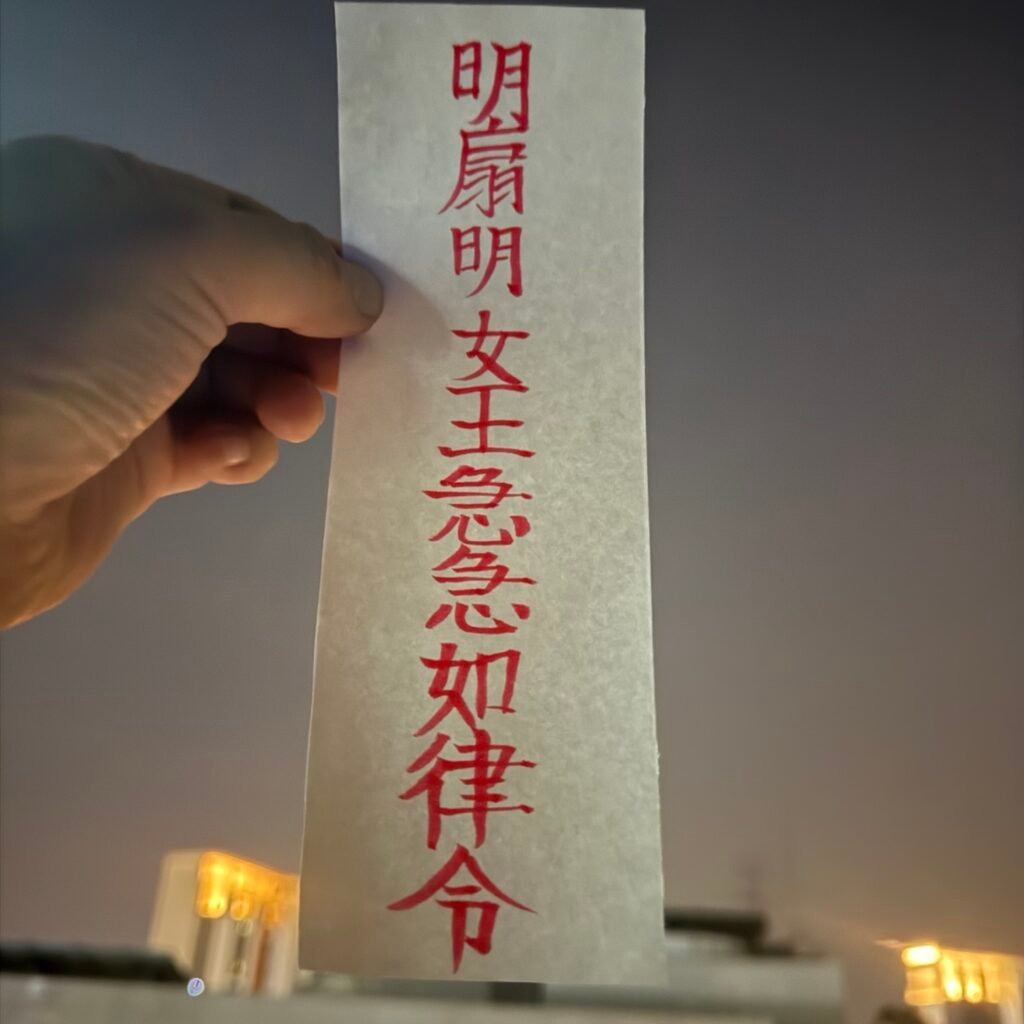 明扇明女王急急如律令